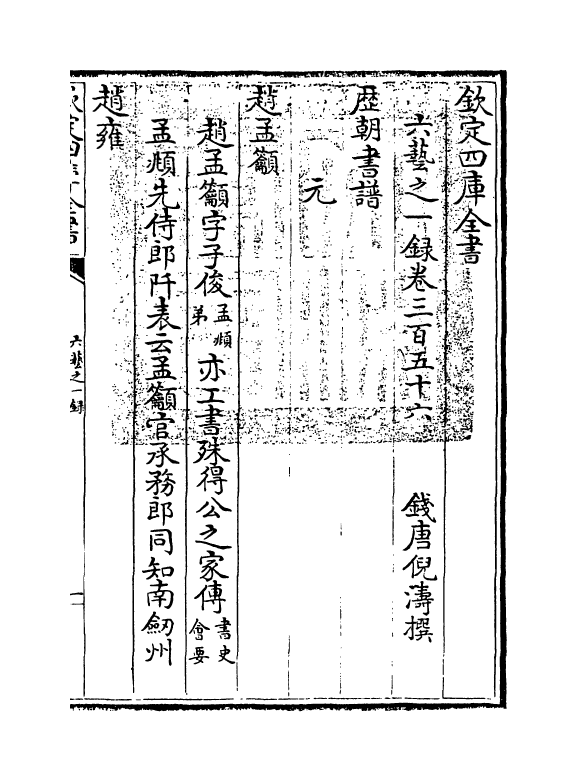 欽定四庫全書
六藝之一録卷三百五十六
錢唐倪濤撰
歴朝書譜
元
趙孟籲
趙孟籲字子俊孟頫弟亦工書殊得公之家傳書史會要
孟頫先侍郎阡表云孟籲官承務郎同知南劒州
趙雍
欽定四庫全書
六藝之一録